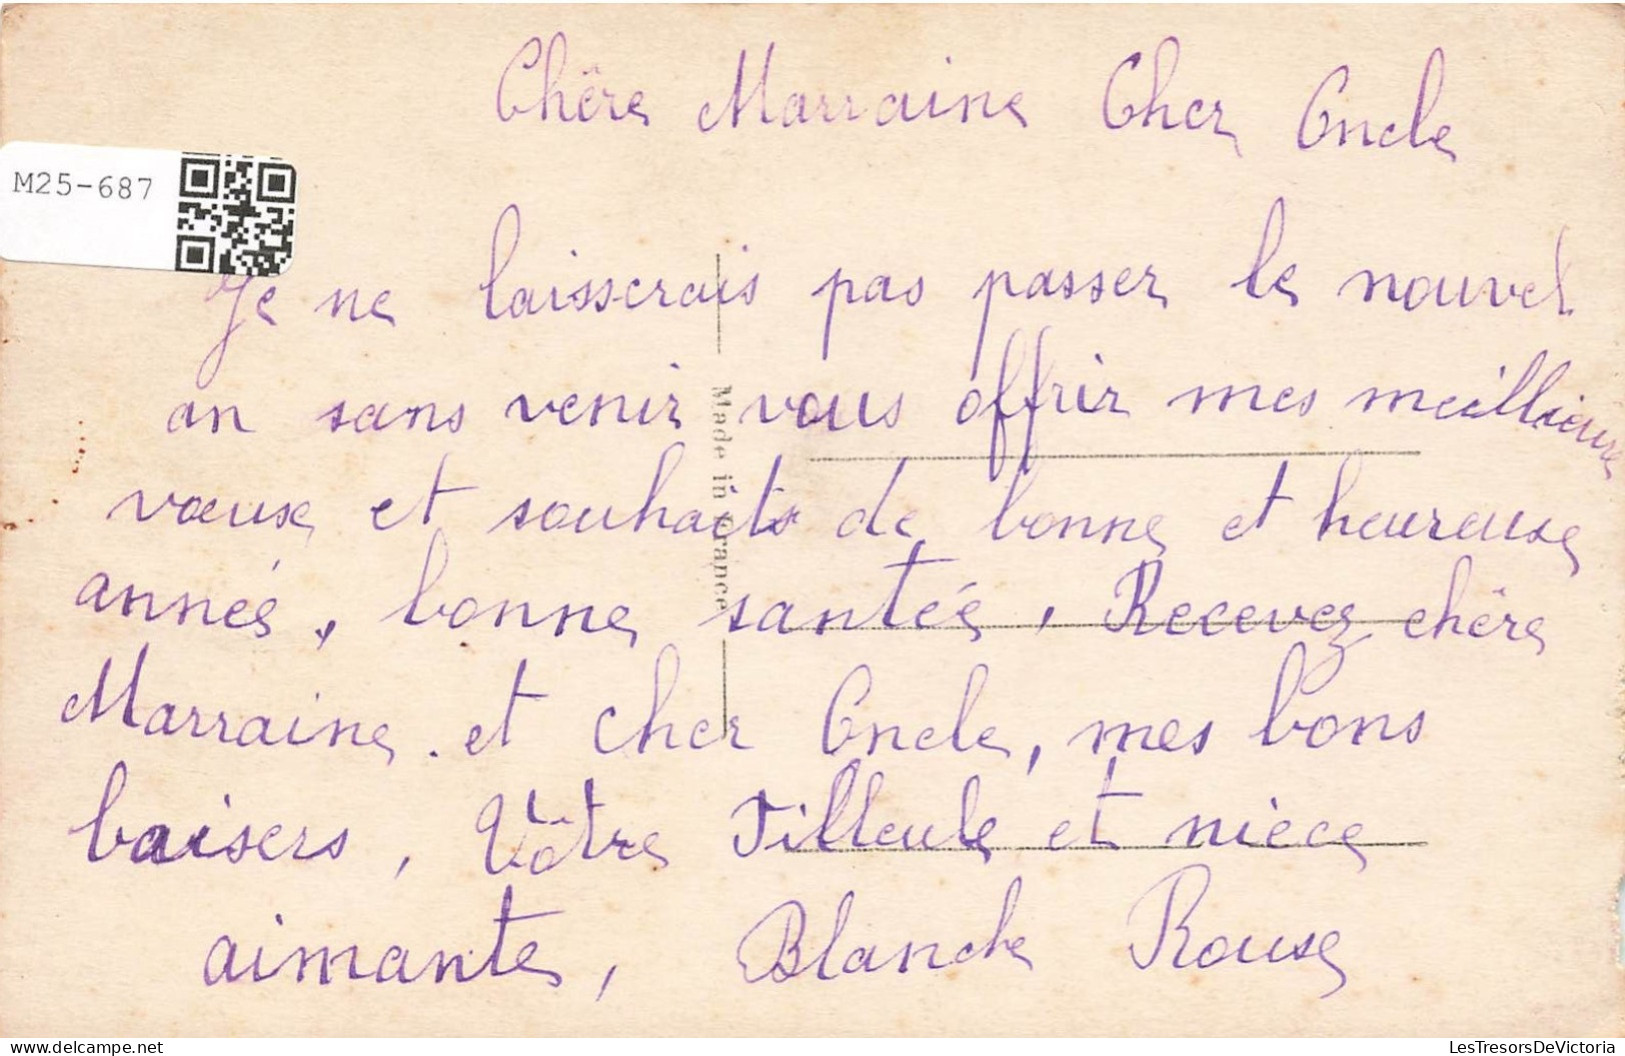 Chère Marraine Cher Oncle
M25-687
Je ne laisserais pas passer le nouvel
an sans venir vous offrir mes meillieurs
Made in France
vœuse et souhaits de bonne et heureuse
année, bonne santée, Recevez chère
Marraine et cher Oncle, mes bons
baisers, Vôtre Filleule et nièce
aimante, Blanche Rouse
delcampe.net
LesTresorsDeVictoria